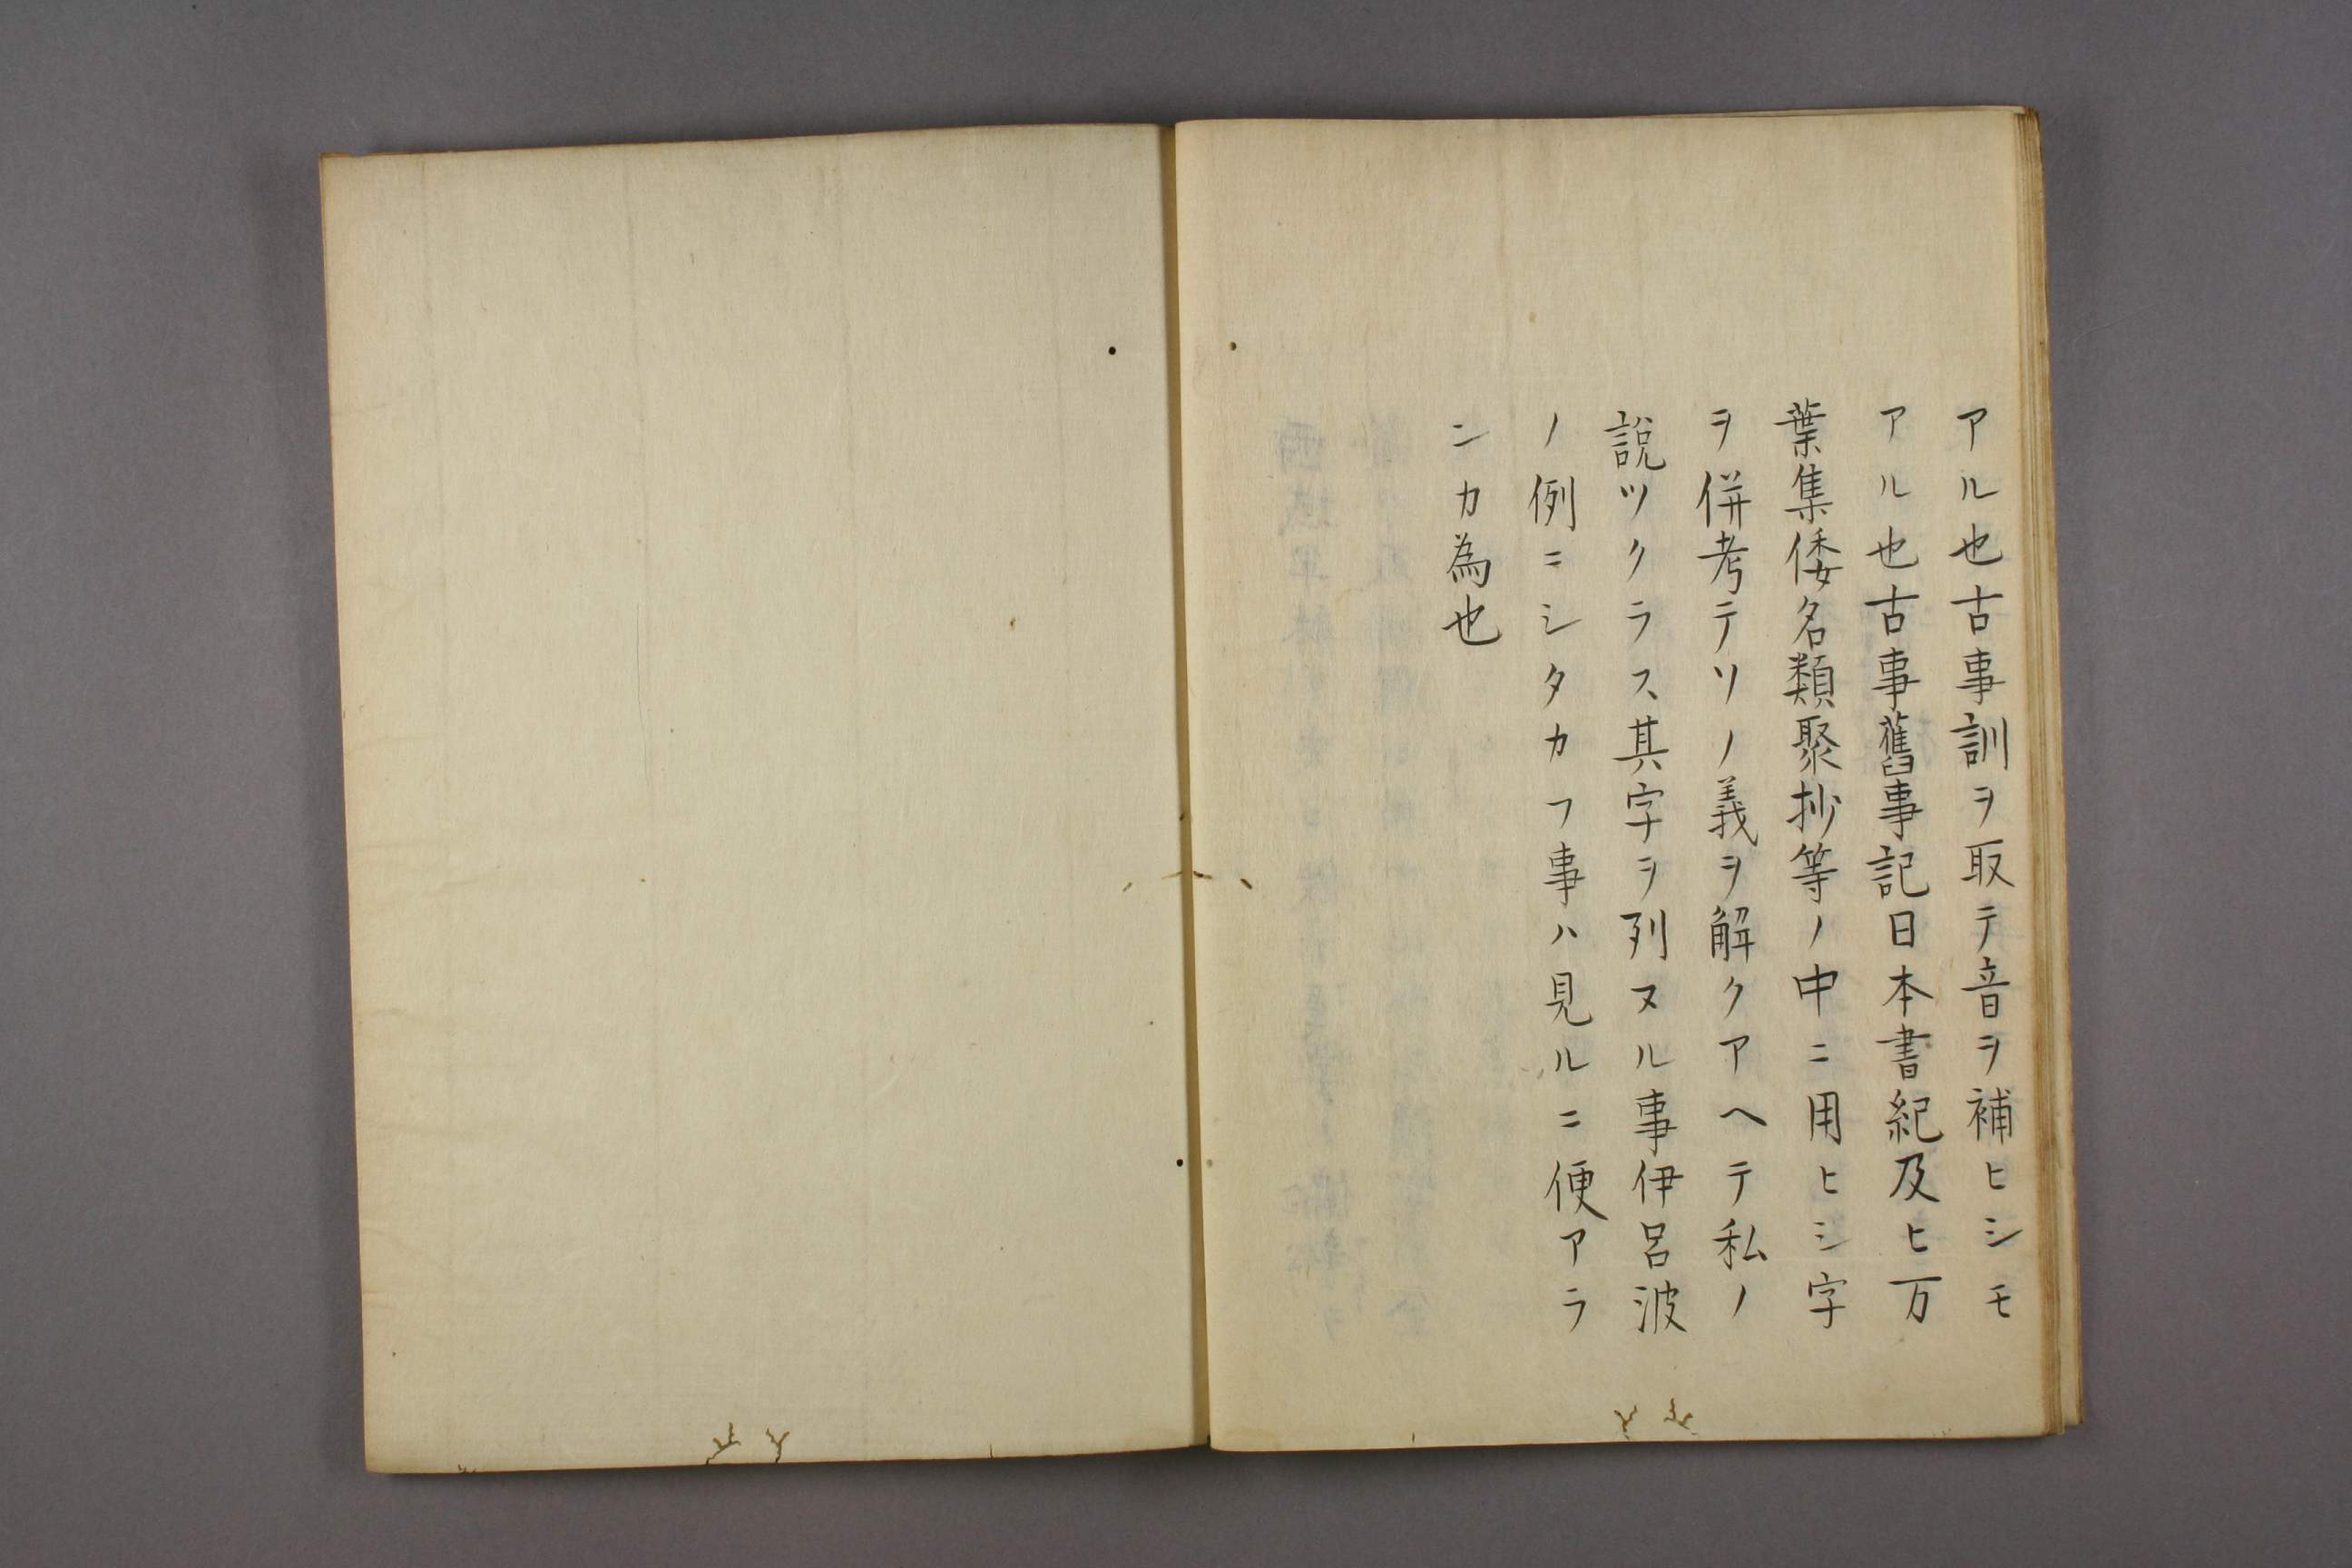 アル也古事訓ヲ取テ音ヲ補ヒシモ
アル也古事舊事記日本書紀及ヒ万
葉集倭名類聚抄等ノ中ニ用ヒシ字
ヲ併考テソノ義ヲ解クアヘテ私ノ
説ツクラス其字ヲ列ヌル事伊呂波
ノ例ニシタカフ事ハ見ルニ便アラ
ンカ為也